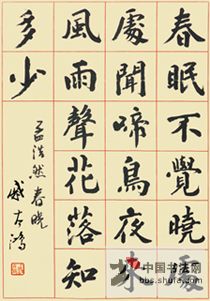 春眠不覺曉處
處聞啼鳥夜來
風雨聲花落知
多少
孟浩然春晓
中国书法网
bbs.shufa.com